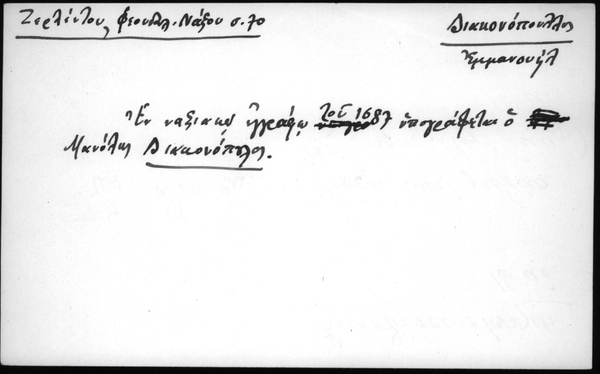 Ζερλέντου, Φεουδλ. Νάξου σ. 70
Διακονόπουλλος
Ἐμμανουήλ
Ἐν ναξιακῷ ἐγγράφῳ τοῦ 1687 ὑπογράφεται ὁ
Μανόλης Διακονόπουλος.